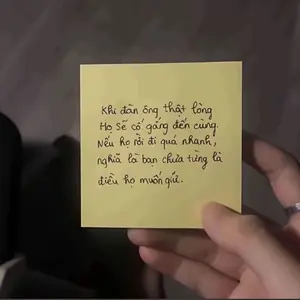 Khi đàn ông thật lòng
Họ sẽ cố gắng đến cùng.
Nếu họ rời đi quá nhanh,
nghĩa là bạn chưa từng là
điều họ muốn giữ.